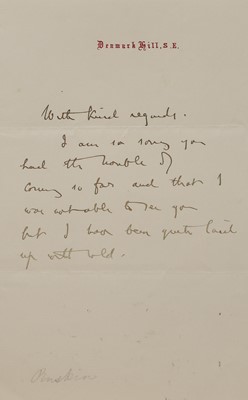 Denmark Hill, S.E.
With kind regards.
I am so sorry you
had the trouble of
coming so far and that I
was not able to see you
but I have been quite laid
up with cold.
Ruskin